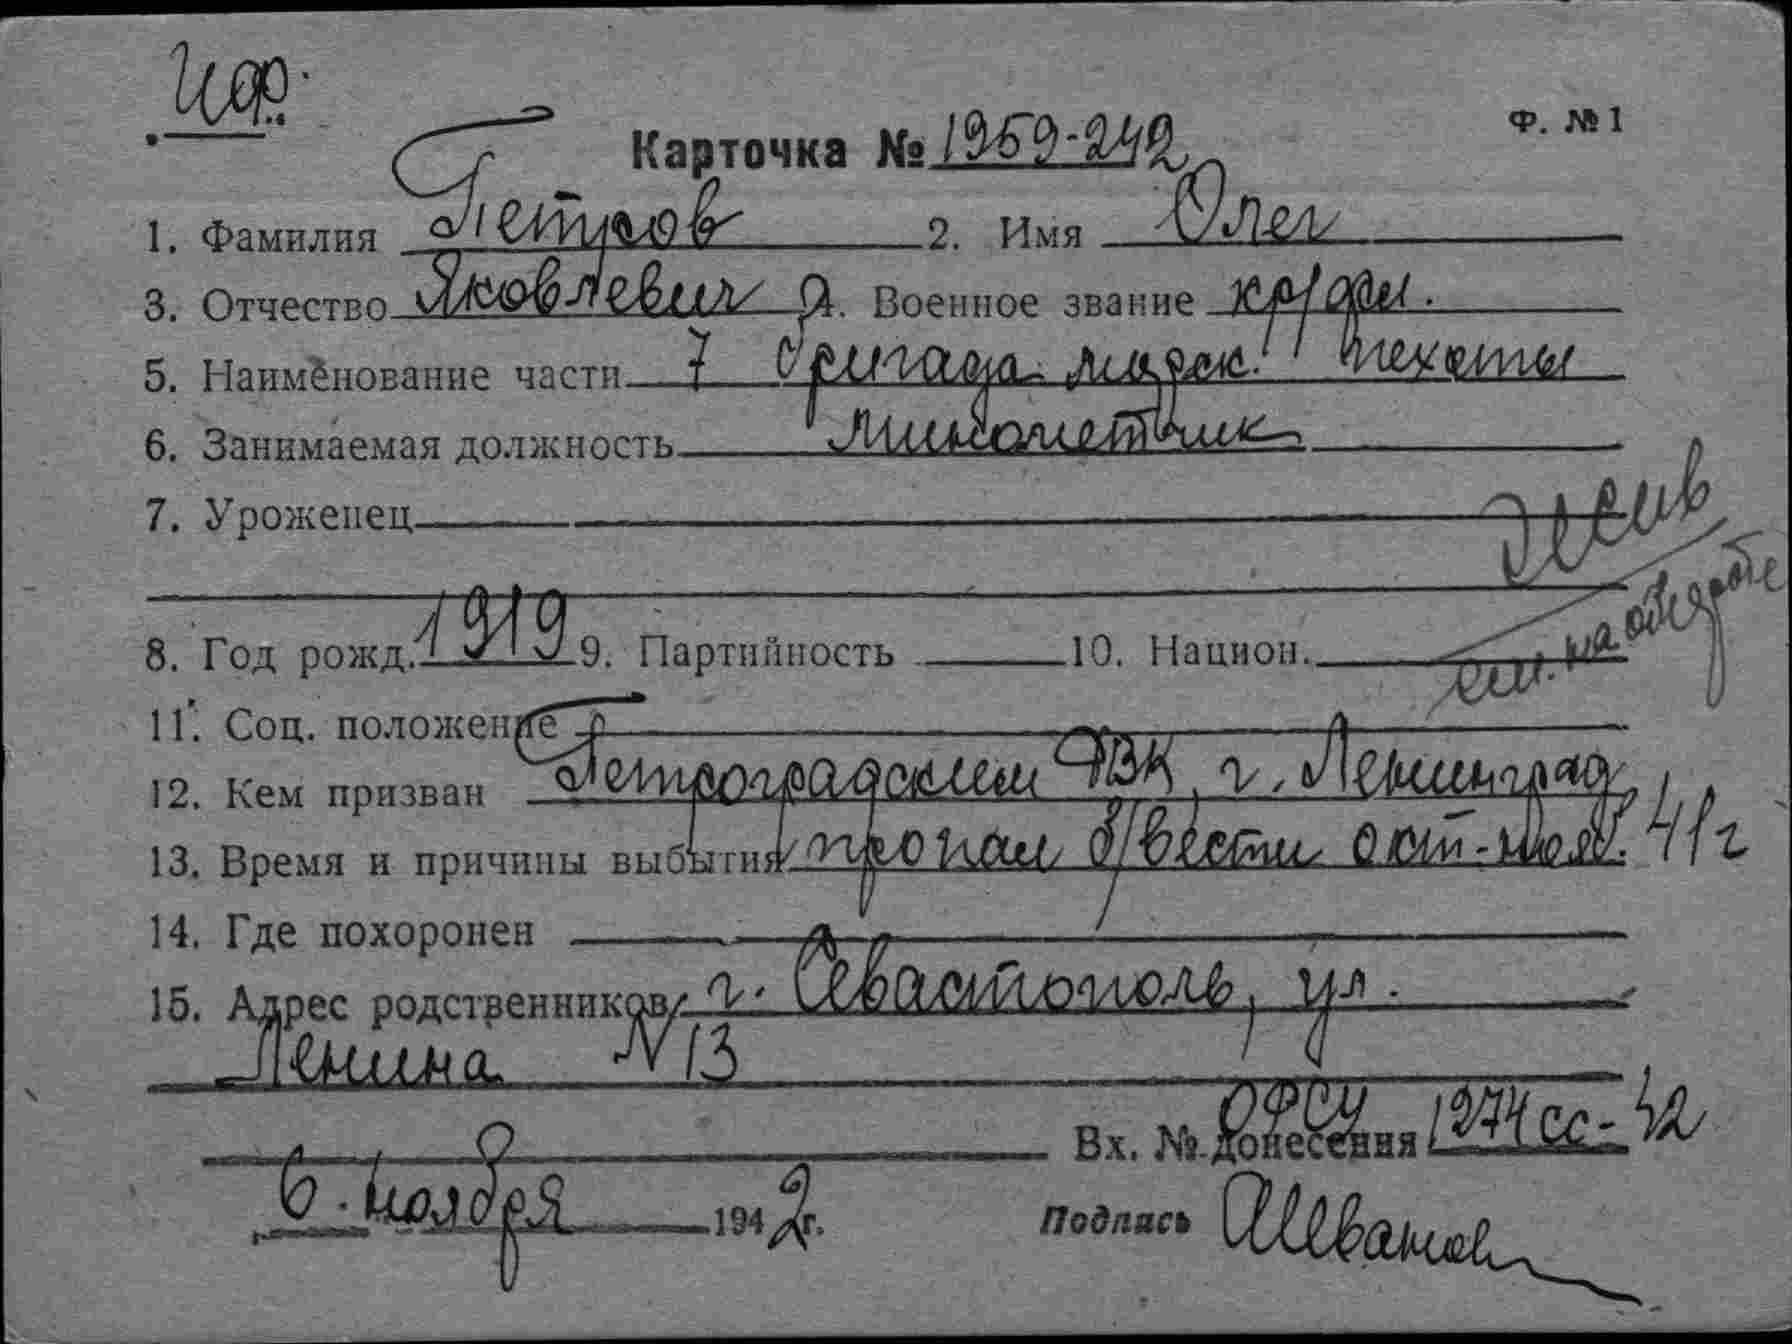 Ф. № 1
Карточка № 1959-242
1. Фамилия Петров 2. Имя Олег
3. Отчество Яковлевич 4. Военное звание кр/фл.
5. Наименование части 7 бригада морск. пехоты
6. Занимаемая должность минометчик
7. Уроженец
Жив
см. на обороте
8. Год рожд. 1919 9. Партийность 10. Национ.
11. Соц. положение
12. Кем призван Петроградским РВК, г. Ленинград
13. Время и причины выбытия пропал б/вести окт-нояб. 41 г
14. Где похоронен
15. Адрес родственников г. Севастополь, ул.
Ленина N 13
Вх. № донесения 1274 сс-42
6 ноября 1942 г. Подпись